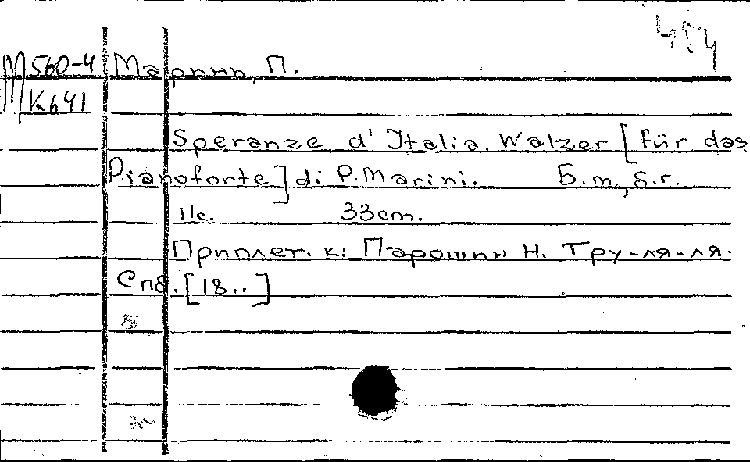 М 560-4 Марини, П.
К641
Speranze d'Italia. Walzer [für das
Pianoforte] di P. Marini. Б.т., б.г.
11с. 33cm.
Приплет. к: Парошин Н. Тру-ля-ля.
Спб. [18..]